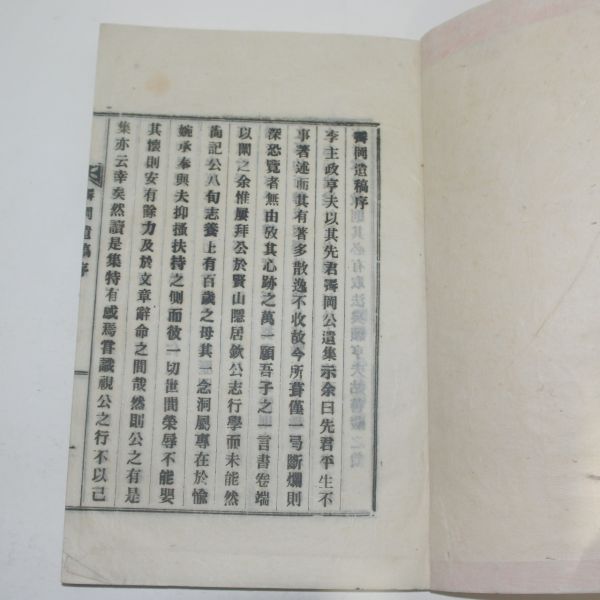 霽岡遺稿序
李主政亨夫以其先君霽岡公遺集示余曰先君平生不
事著述而其有著多散逸不收故今所蒐僅一弓斷爛則
深恐覽者無由攷其心跡之萬一願吾子之一言書卷端
以闡之余惟屢拜公於賢山隱居欽公志行學而未能然
尙記公八旬志養上有百歲之母其一念洞屬專在於愉
婉承奉與夫抑搔扶持之側而彼一切世間榮辱不能嬰
其懷則安有餘力及於文章辭命之間哉然則公之有是
集亦云幸矣然讀是集特有感焉嘗議視公之行不以己
霽岡遺稿序
一